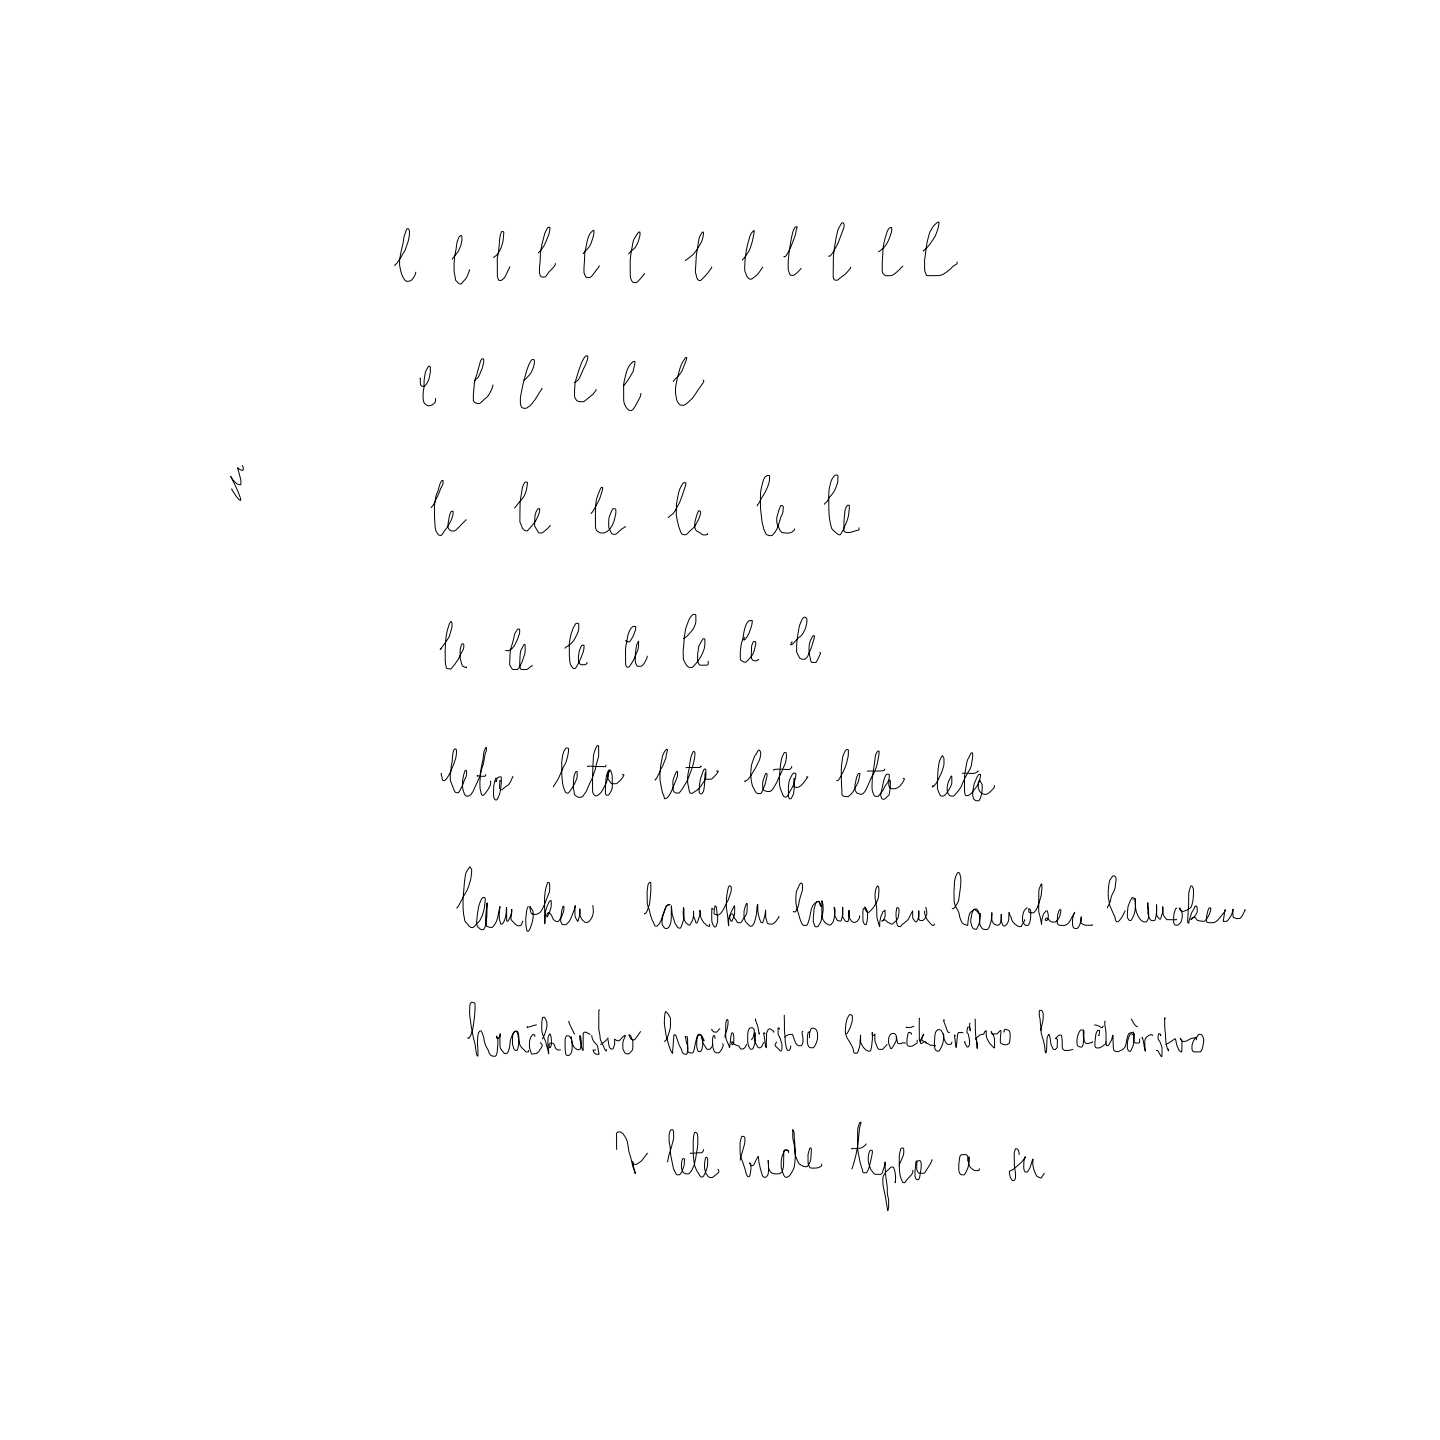 l l l l l l l l l l l l
l l l l l l
le le le le le le
le le le le le le le
leto leto leto leto leto leto
lamoken lamoken lamoken lamoken lamoken
hračkárstvo hračkárstvo hračkárstvo hračkárstvo
V lete bude teplo a su